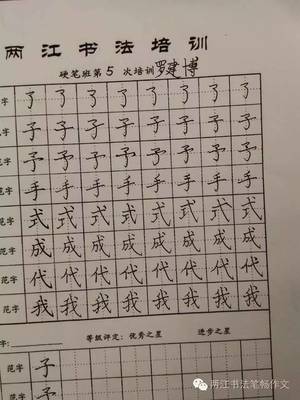 两江书法培训
硬笔班第 5 次培训 罗建博
范字 了 了 了 了 了 了 了 了
范字 子 子 子 子 子 子 子 子
范字 予 予 予 予 予 予 予 予
范字 手 手 手 手 手 手 手 手
范字 式 式 式 式 式 式 式 式
范字 成 成 成 成 成 成 成 成
范字 代 代 代 代 代 代 代 代
范字 我 我 我 我 我 我 我 我
字: 等级评定: 优秀之星 进步之星
范字 子
子
两江书法笔畅作文